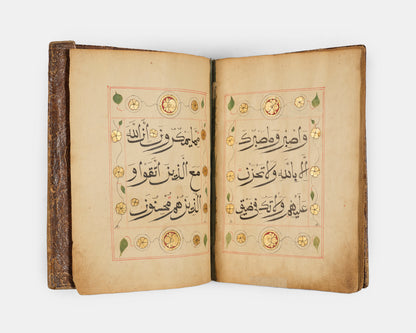 وَاصْبِرْ وَمَا صَبْرُكَ
إِلَّا بِاللَّهِ وَلَا تَحْزَنْ
عَلَيْهِمْ وَلَا تَكُ فِي ضَيْقٍ
مِمَّا يَمْكُرُونَ إِنَّ اللَّهَ
مَعَ الَّذِينَ اتَّقَوْا وَ
الَّذِينَ هُمْ مُحْسِنُونَ